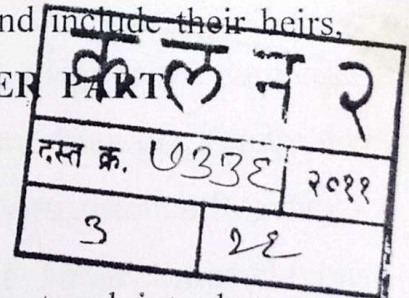 nd include their heirs,
ER PART
क ल न २
दस्त क्र. ७३३६ २०११
३